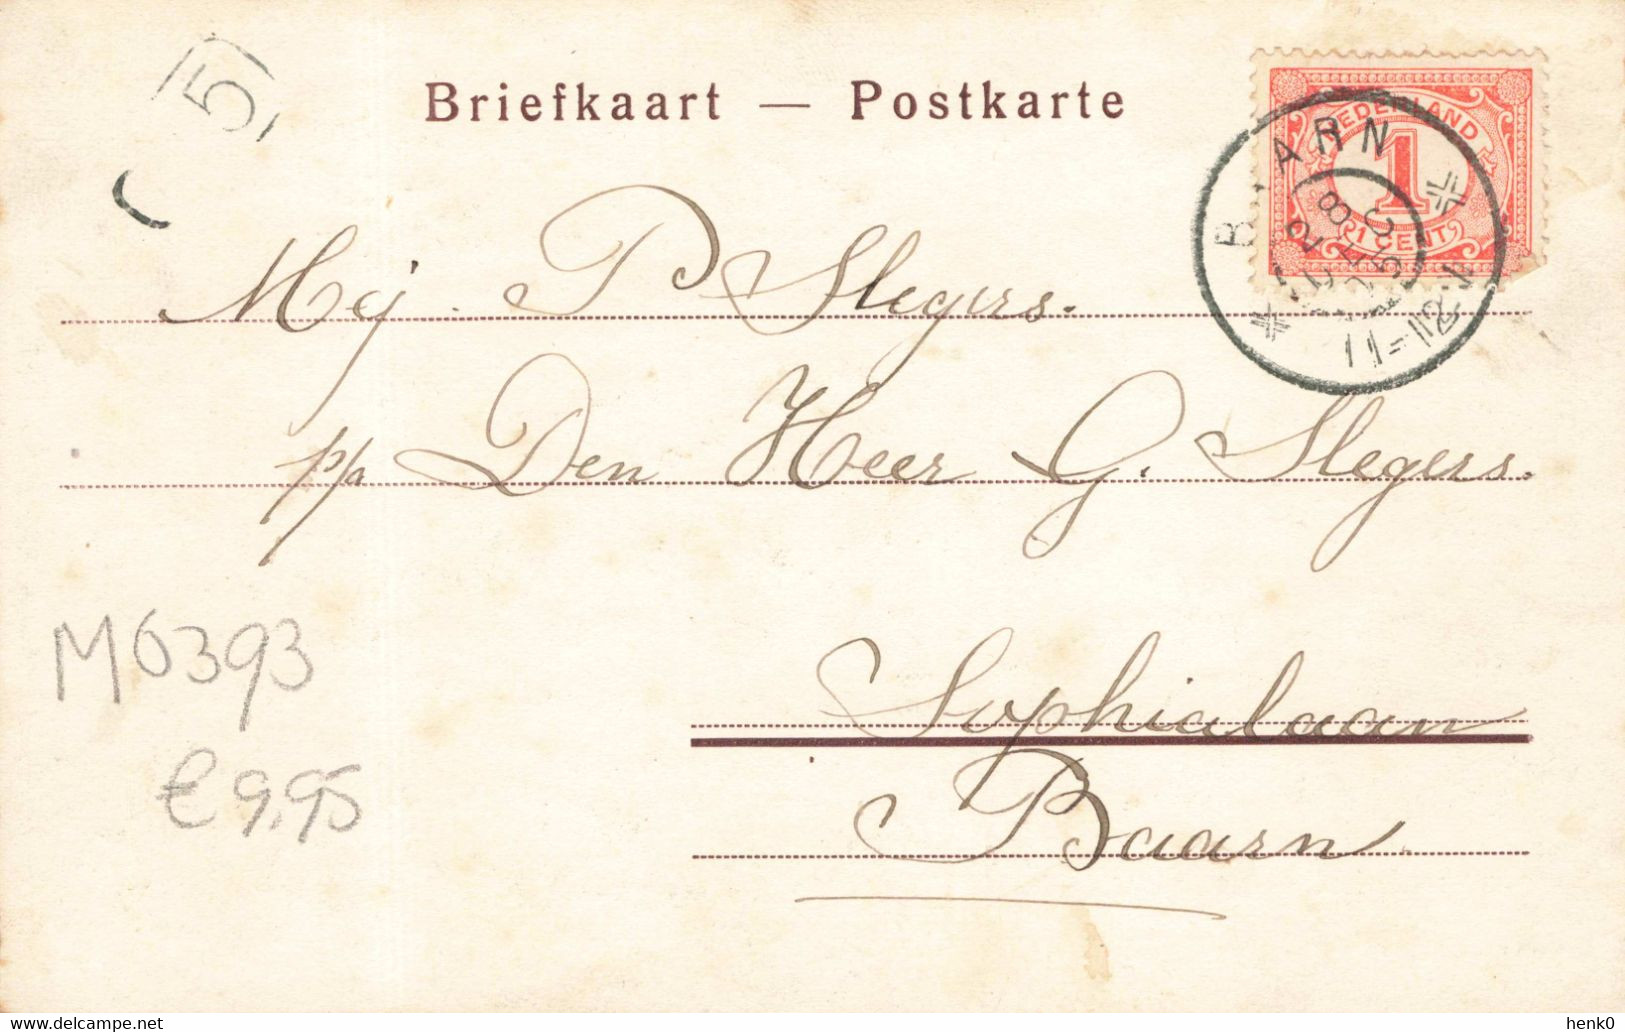 5
Briefkaart — Postkarte
NEDERLAND
1
1 CENT
BAARN
11-12 V
Mej. P Slegers.
p/a Den Heer G. Slegers.
Sophialaan
Baarn
M6393
€ 9,95
henk0